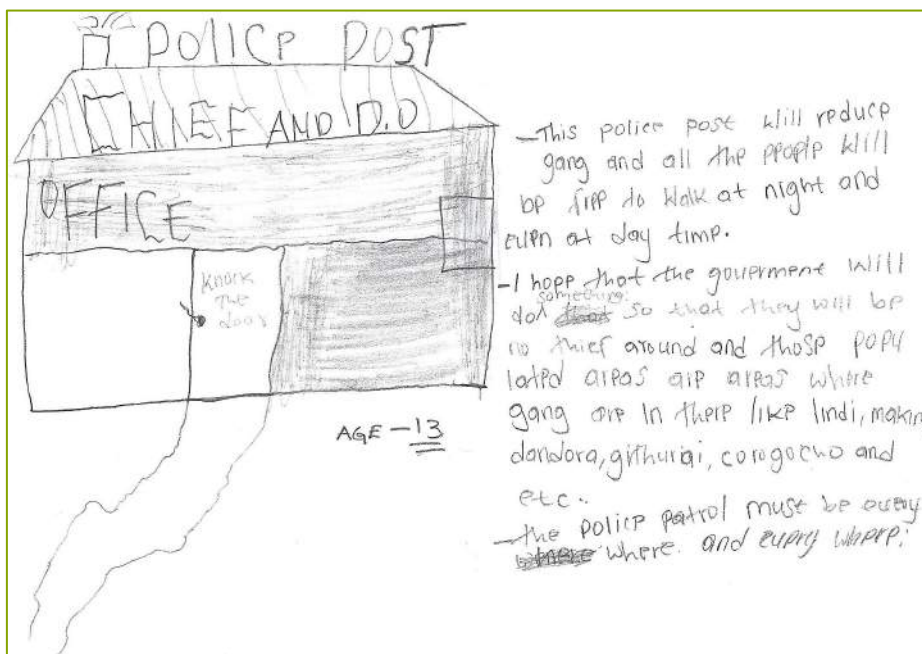 POLICE POST
CHIEF AND D.O
OFFICE
Knock
The
door
AGE - 13
- This police post will reduce
gang and all the people will
be free to walk at night and
even at day time.
- I hope that the goverment will
do something so that they will be
no thief around and those popu
lated areas are areas where
gang are in there like lindi, makin
dandora, githuriai, corogocho and
etc..
- the police patrol must be every
where. and every where.